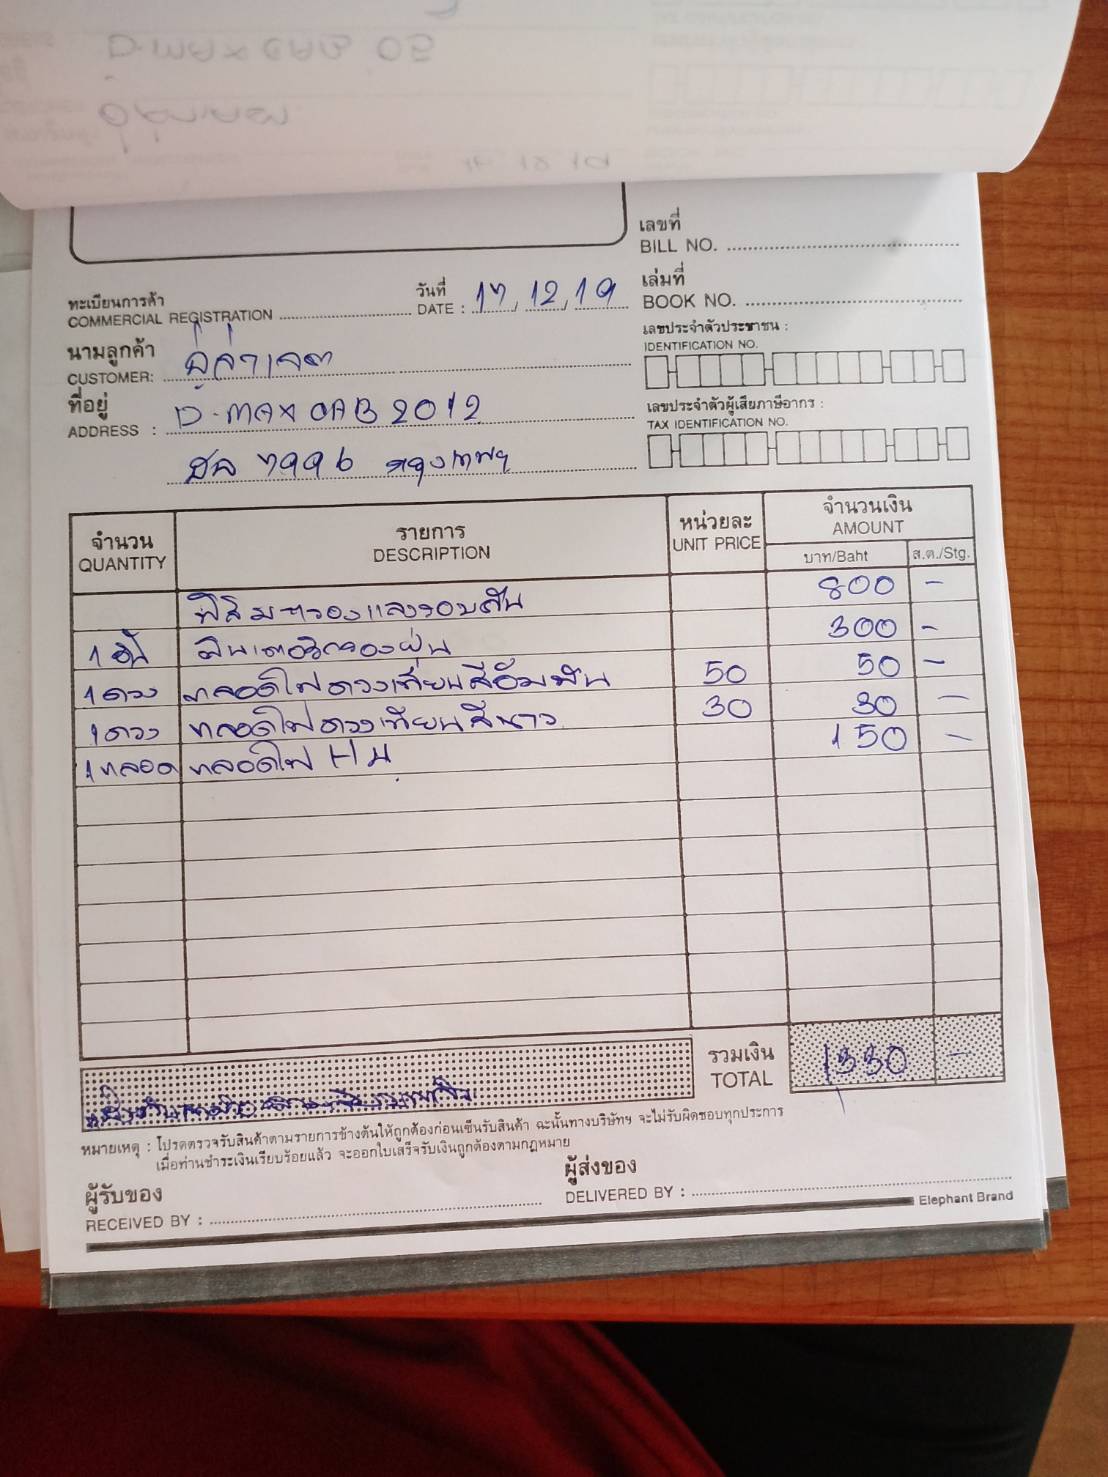 เลขที่
BILL NO.
ทะเบียนการค้า
COMMERCIAL REGISTRATION
วันที่
DATE : 17, 12, 19
เล่มที่
BOOK NO.
นามลูกค้า
CUSTOMER:
เลขประจำตัวประชาชน :
IDENTIFICATION NO.
ที่อยู่
ADDRESS : D-MAX CAB 2012
เลขประจำตัวผู้เสียภาษีอากร :
TAX IDENTIFICATION NO.
กรุงเทพฯ
จำนวน
QUANTITY
รายการ
DESCRIPTION
หน่วยละ
UNIT PRICE
จำนวนเงิน
AMOUNT
บาท/Baht ส.ต./Stg.
ฟิล์มกรองแสงรอบคัน 800 -
1 อัน ฟินเตอร์กรองฝุ่น 300 -
1 ดวง หลอดไฟดวงเทียนสีอัมพัน 50 50 -
1 ดวง หลอดไฟดวงเทียนสีขาว 30 30 -
1 หลอด หลอดไฟ H4 150 -
รวมเงิน
TOTAL 1330 -
หมายเหตุ : โปรดตรวจรับสินค้าตามรายการข้างต้นให้ถูกต้องก่อนเซ็นรับสินค้า ฉะนั้นทางบริษัทฯ จะไม่รับผิดชอบทุกประการ
เมื่อท่านชำระเงินเรียบร้อยแล้ว จะออกใบเสร็จรับเงินถูกต้องตามกฎหมาย
ผู้รับของ
RECEIVED BY :
ผู้ส่งของ
DELIVERED BY :
Elephant Brand